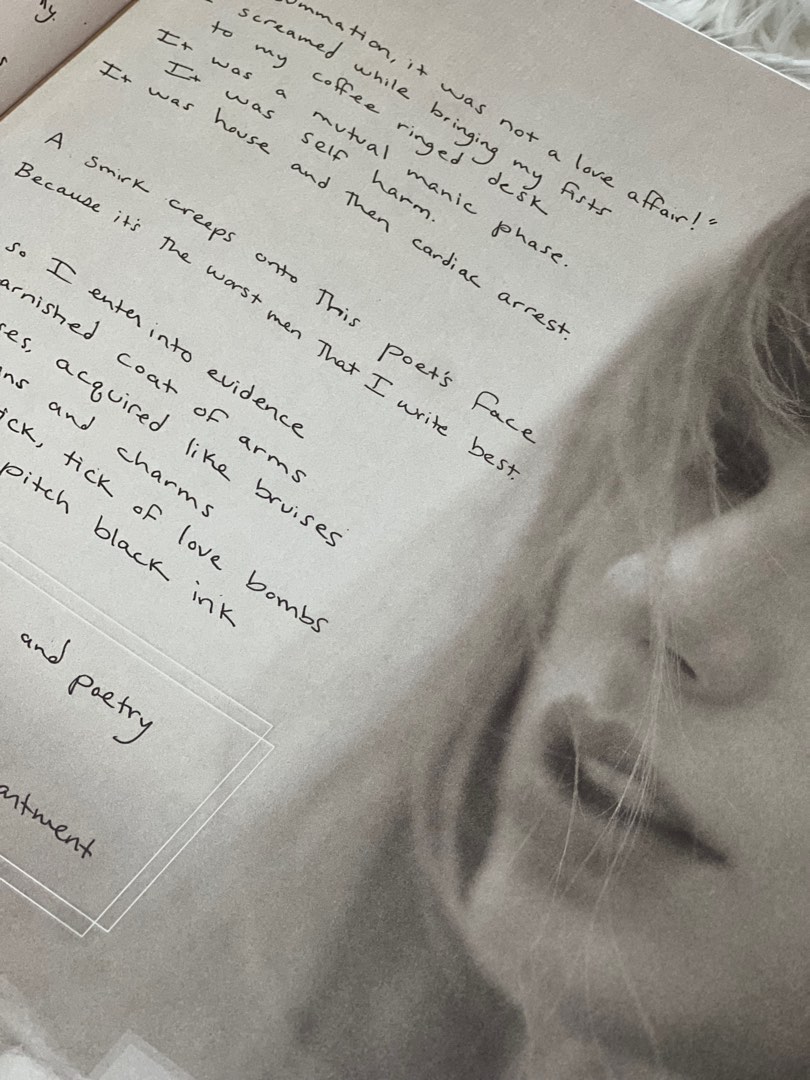 y.
it was not a love affair!"
screamed while bringing my fists
to my coffee ringed desk
It was a mutual manic phase.
It was self harm.
It was house and then cardiac arrest.
A smirk creeps onto this poet's face
Because it's the worst men that I write best.
so I enter into evidence
arnished coat of arms
ses, acquired like bruises
ns and charms
ick, tick of love bombs
pitch black ink
and poetry
artment